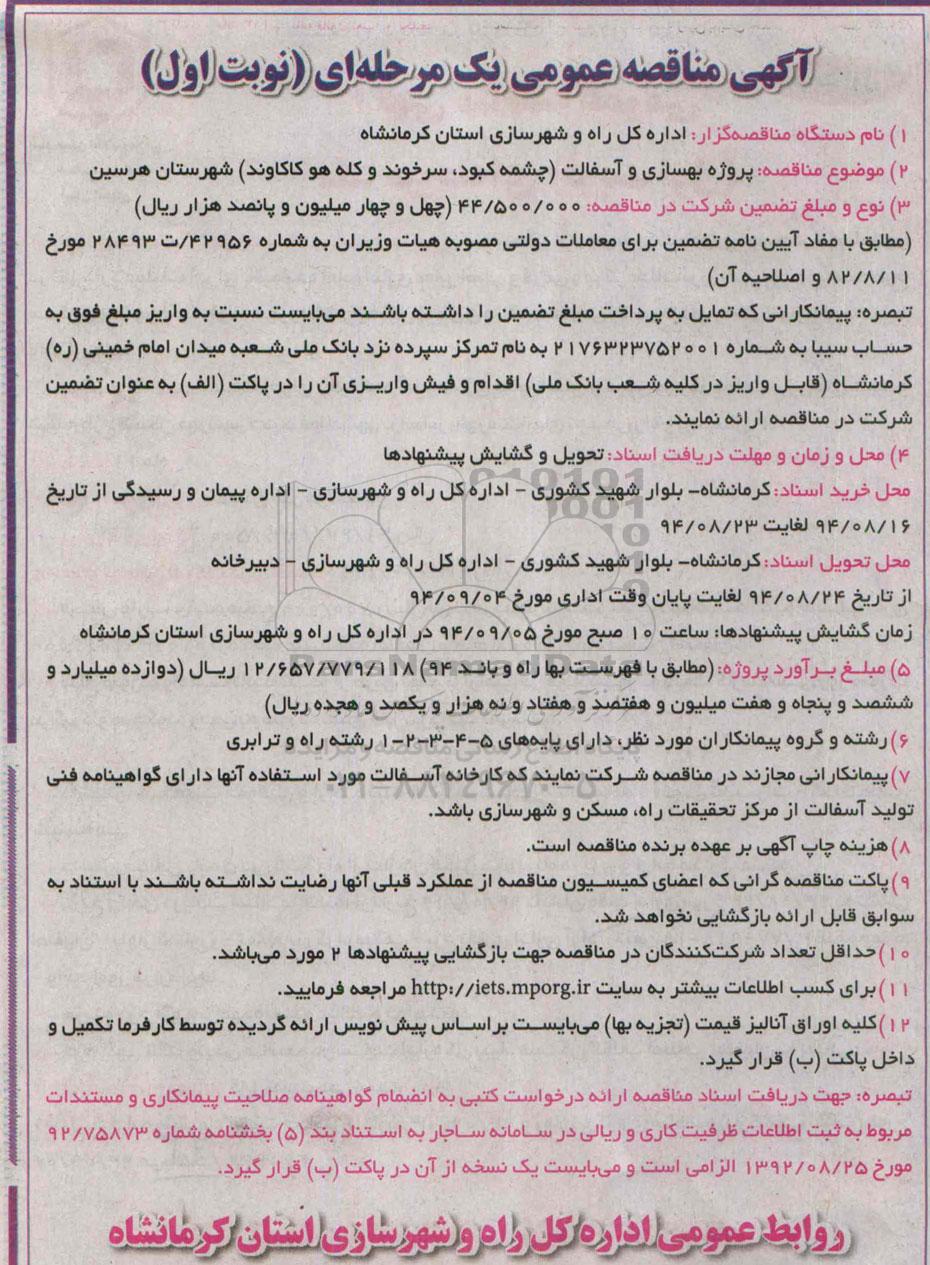 آگهی مناقصه عمومی یک مرحله‌ای (نوبت اول)
۱) نام دستگاه مناقصه‌گزار: اداره کل راه و شهرسازی استان کرمانشاه
۲) موضوع مناقصه: پروژه بهسازی و آسفالت (چشمه کبود، سرخوند و کله هو کاکاوند) شهرستان هرسین
۳) نوع و مبلغ تضمین شرکت در مناقصه: ۴۴/۵۰۰/۰۰۰ (چهل و چهار میلیون و پانصد هزار ریال)
(مطابق با مفاد آیین نامه تضمین برای معاملات دولتی مصوبه هیات وزیران به شماره ۴۲۹۵۶/ت ۲۸۴۹۳ مورخ
۸۲/۸/۱۱ و اصلاحیه آن)
تبصره: پیمانکارانی که تمایل به پرداخت مبلغ تضمین را داشته باشند می‌بایست نسبت به واریز مبلغ فوق به
حساب سیبا به شماره ۲۱۷۶۳۲۳۷۵۲۰۰۱ به نام تمرکز سپرده نزد بانک ملی شعبه میدان امام خمینی (ره)
کرمانشاه (قابل واریز در کلیه شعب بانک ملی) اقدام و فیش واریزی آن را در پاکت (الف) به عنوان تضمین
شرکت در مناقصه ارائه نمایند.
۴) محل و زمان و مهلت دریافت اسناد: تحویل و گشایش پیشنهادها
محل خرید اسناد: کرمانشاه- بلوار شهید کشوری - اداره کل راه و شهرسازی - اداره پیمان و رسیدگی از تاریخ
۹۴/۰۸/۱۶ لغایت ۹۴/۰۸/۲۳
محل تحویل اسناد: کرمانشاه- بلوار شهید کشوری - اداره کل راه و شهرسازی - دبیرخانه
از تاریخ ۹۴/۰۸/۲۴ لغایت پایان وقت اداری مورخ ۹۴/۰۹/۰۴
زمان گشایش پیشنهادها: ساعت ۱۰ صبح مورخ ۹۴/۰۹/۰۵ در اداره کل راه و شهرسازی استان کرمانشاه
۵) مبلغ برآورد پروژه: (مطابق با فهرست بها راه و باند ۹۴) ۱۲/۶۵۷/۷۷۹/۱۱۸ ریال (دوازده میلیارد و
ششصد و پنجاه و هفت میلیون و هفتصد و هفتاد و نه هزار و یکصد و هجده ریال)
۶) رشته و گروه پیمانکاران مورد نظر، دارای پایه‌های ۵-۴-۳-۲-۱ رشته راه و ترابری
۷) پیمانکارانی مجازند در مناقصه شرکت نمایند که کارخانه آسفالت مورد استفاده آنها دارای گواهینامه فنی
تولید آسفالت از مرکز تحقیقات راه، مسکن و شهرسازی باشد.
۸) هزینه چاپ آگهی بر عهده برنده مناقصه است.
۹) پاکت مناقصه گرانی که اعضای کمیسیون مناقصه از عملکرد قبلی آنها رضایت نداشته باشند با استناد به
سوابق قابل ارائه بازگشایی نخواهد شد.
۱۰) حداقل تعداد شرکت‌کنندگان در مناقصه جهت بازگشایی پیشنهادها ۲ مورد می‌باشد.
۱۱) برای کسب اطلاعات بیشتر به سایت http://iets.mporg.ir مراجعه فرمایید.
۱۲) کلیه اوراق آنالیز قیمت (تجزیه بها) می‌بایست براساس پیش نویس ارائه گردیده توسط کارفرما تکمیل و
داخل پاکت (ب) قرار گیرد.
تبصره: جهت دریافت اسناد مناقصه ارائه درخواست کتبی به انضمام گواهینامه صلاحیت پیمانکاری و مستندات
مربوط به ثبت اطلاعات ظرفیت کاری و ریالی در سامانه ساجار به استناد بند (۵) بخشنامه شماره ۹۲/۷۵۸۷۳
مورخ ۱۳۹۲/۰۸/۲۵ الزامی است و می‌بایست یک نسخه از آن در پاکت (ب) قرار گیرد.
روابط عمومی اداره کل راه و شهرسازی استان کرمانشاه